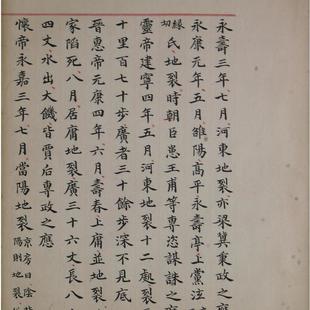 永壽三年七月河東地裂亦梁冀秉政之應
永康元年五月雒陽高平永壽亭上黨泫
緣切
氏地裂時朝臣患王甫等專恣謀誅之
靈帝建寧四年五月河東地裂十二處裂
十里百七十步廣者三十餘步深不見底
晉惠帝元康四年六月壽春上庸並地裂
家陷死八月居庸地裂廣三十六丈長八
四丈水出大饑皆賈后專政之應
懷帝永嘉三年七月當陽地裂
京房曰陰
陽則地裂